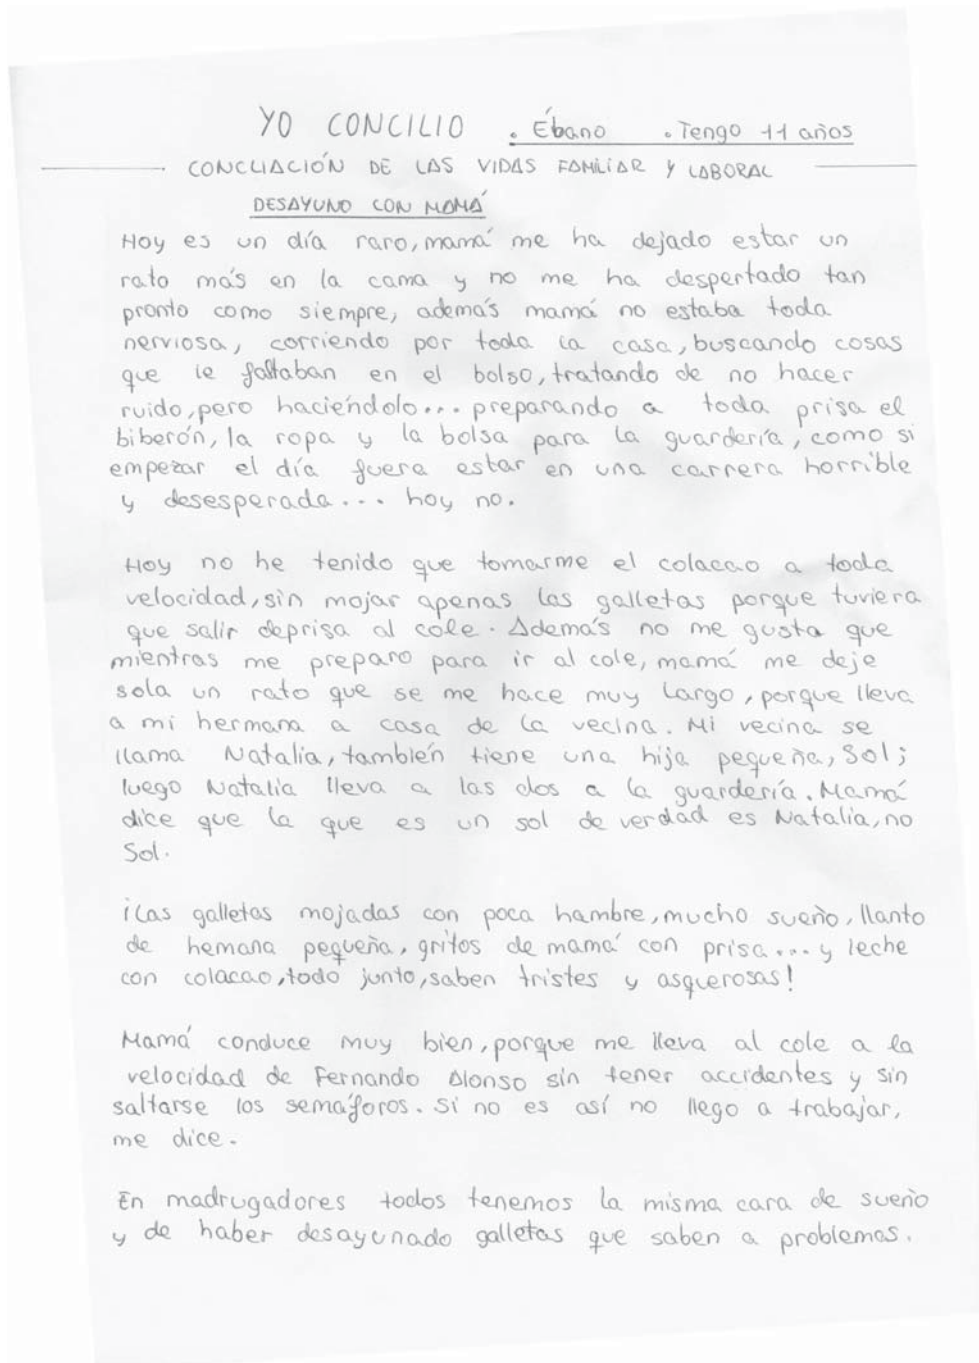 YO CONCILIO . Ébano . Tengo 11 años
CONCLIACIÓN DE LAS VIDAS FAMILIAR Y LABORAL
DESAYUNO CON MAMÁ
Hoy es un día raro, mamá me ha dejado estar un
rato más en la cama y no me ha despertado tan
pronto como siempre, además mamá no estaba toda
nerviosa, corriendo por toda la casa, buscando cosas
que le faltaban en el bolso, tratando de no hacer
ruido, pero haciéndolo... preparando a toda prisa el
biberón, la ropa y la bolsa para la guardería, como si
empezar el día fuera estar en una carrera horrible
y desesperada... hoy no.
Hoy no he tenido que tomarme el colacao a toda
velocidad, sin mojar apenas las galletas porque tuviera
que salir deprisa al cole. Además no me gusta que
mientras me preparo para ir al cole, mamá me deje
sola un rato que se me hace muy largo, porque lleva
a mi hermana a casa de la vecina. Mi vecina se
llama Natalia, también tiene una hija pequeña, Sol;
luego Natalia lleva a las dos a la guardería. Mamá
dice que la que es un sol de verdad es Natalia, no
Sol.
¡Las galletas mojadas con poca hambre, mucho sueño, llanto
de hemana pequeña, gritos de mamá con prisa... y leche
con colacao, todo junto, saben tristes y asquerosas!
Mamá conduce muy bien, porque me lleva al cole a la
velocidad de Fernando Alonso sin tener accidentes y sin
saltarse los semáforos. Si no es así no llego a trabajar,
me dice.
En madrugadores todos tenemos la misma cara de sueño
y de haber desayunado galletas que saben a problemas.